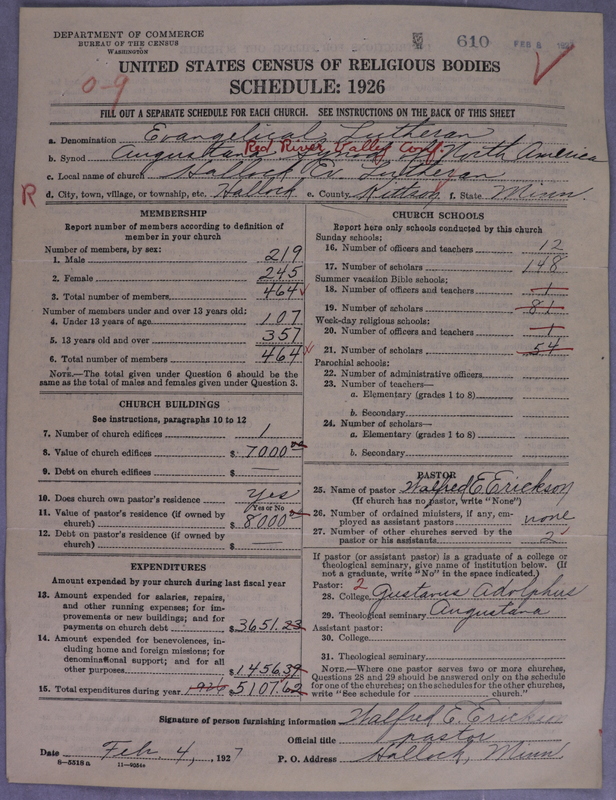 DEPARTMENT OF COMMERCE
BUREAU OF THE CENSUS
WASHINGTON
610 FEB 8 1927
UNITED STATES CENSUS OF RELIGIOUS BODIES
0-9
SCHEDULE: 1926
FILL OUT A SEPARATE SCHEDULE FOR EACH CHURCH. SEE INSTRUCTIONS ON THE BACK OF THIS SHEET
a. Denomination Evangelical Lutheran
Red River Valley Conf.
b. Synod Augustana Synod of North America
c. Local name of church Hallock Ev. Lutheran
R d. City, town, village, or township, etc. Hallock e. County Kittson f. State Minn.
MEMBERSHIP
Report number of members according to definition of
member in your church
Number of members, by sex:
1. Male 219
2. Female 245
3. Total number of members 464
Number of members under and over 13 years old:
4. Under 13 years of age 107
5. 13 years old and over 357
6. Total number of members 464
NOTE.—The total given under Question 6 should be the
same as the total of males and females given under Question 3.
CHURCH BUILDINGS
See instructions, paragraphs 10 to 12
7. Number of church edifices 1
8. Value of church edifices $ 7000.00
9. Debt on church edifices $ —
10. Does church own pastor's residence Yes
(Yes or No)
11. Value of pastor's residence (if owned by
church) $ 8000.00
12. Debt on pastor's residence (if owned by
church) $ —
EXPENDITURES
Amount expended by your church during last fiscal year
13. Amount expended for salaries, repairs,
and other running expenses; for im-
provements or new buildings; and for
payments on church debt $ 3651.23
14. Amount expended for benevolences, in-
cluding home and foreign missions; for
denominational support; and for all
other purposes $ 1456.39
15. Total expenditures during year 1926 $ 5107.62
CHURCH SCHOOLS
Report here only schools conducted by this church
Sunday schools:
16. Number of officers and teachers 12
17. Number of scholars 148
Summer vacation Bible schools:
18. Number of officers and teachers 1
19. Number of scholars 81
Week-day religious schools:
20. Number of officers and teachers 1
21. Number of scholars 54
Parochial schools:
22. Number of administrative officers
23. Number of teachers—
a. Elementary (grades 1 to 8)
b. Secondary
24. Number of scholars—
a. Elementary (grades 1 to 8)
b. Secondary
PASTOR
25. Name of pastor Walfred E. Erickson
(If church has no pastor, write "None")
26. Number of ordained ministers, if any, em-
ployed as assistant pastors none
27. Number of other churches served by the
pastor or his assistants 2
If pastor (or assistant pastor) is a graduate of a college or
theological seminary, give name of institution below. (If
not a graduate, write "No" in the space indicated.)
Pastor: 2
28. College Gustavus Adolphus
29. Theological seminary Augustana
Assistant pastor:
30. College
31. Theological seminary
NOTE.—Where one pastor serves two or more churches,
Questions 28 and 29 should be answered only on the schedule
for one of the churches; on the schedules for the other churches,
write "See schedule for church."
Signature of person furnishing information Walfred E. Erickson
Official title pastor
Date Feb. 4, 1927 P. O. Address Hallock, Minn
8—5518a 11—9354